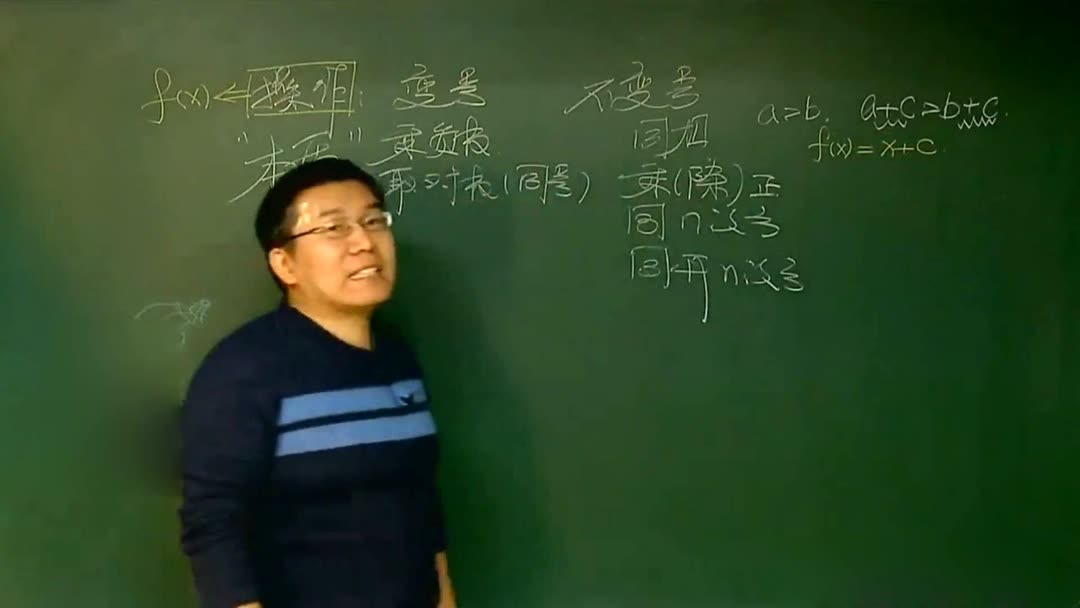 f(x) ← 操作: 变号 不变号
a>b. a+c>b+c.
f(x) = x+c.
"本质" 乘负数 同加
取倒数(同号) 乘(除)正
同n次方
同开n次方